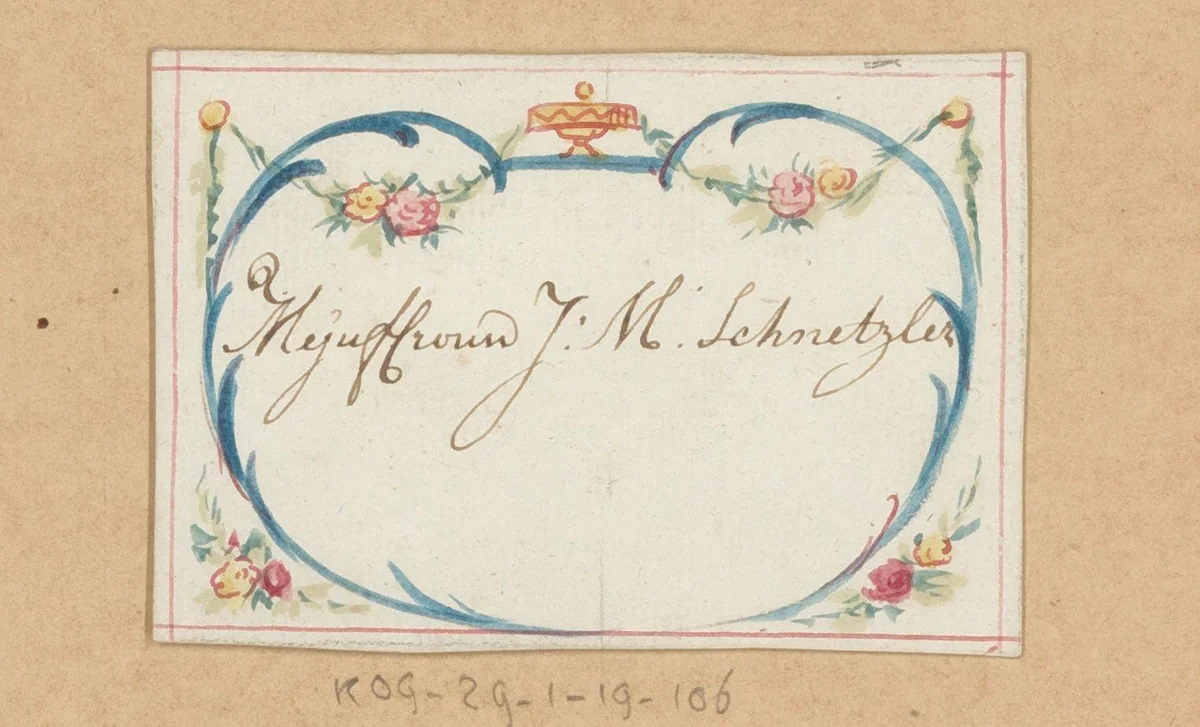 Mejuffrouw J: M. Schnetzler
KOG-29-1-19-106